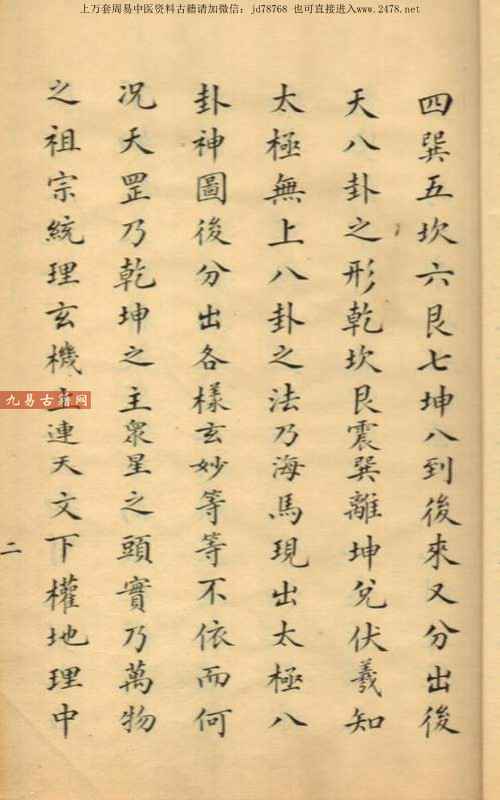 上万套周易中医资料古籍请加微信：jd78768 也可直接进入www.2478.net
四巽五坎六艮七坤八到後來又分出後
天八卦之形乾坎艮震巽離坤兌伏羲知
太極無上八卦之法乃海馬現出太極八
卦神圖後分出各樣玄妙等等不依而何
况天罡乃乾坤之主衆星之頭實乃萬物
之祖宗統理玄機上連天文下權地理中
二
九易古籍网